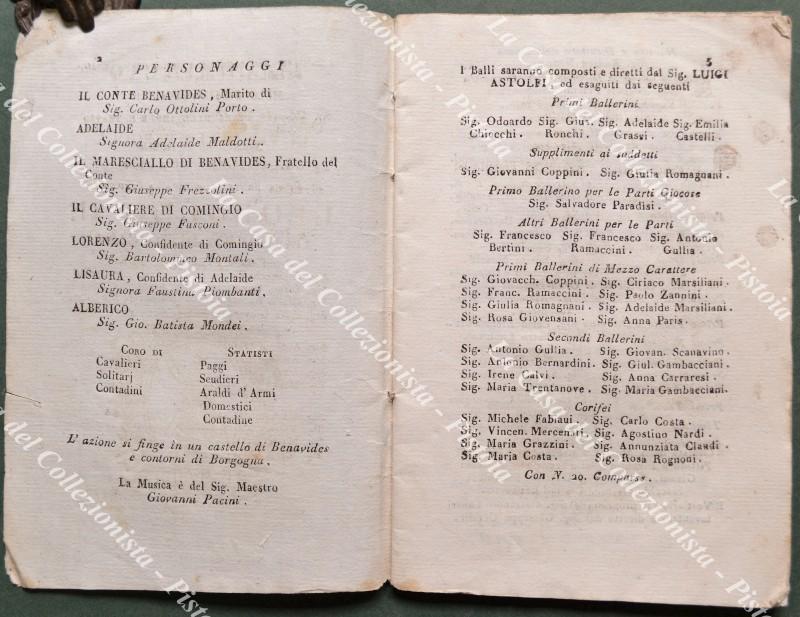 2
PERSONAGGI
IL CONTE BENAVIDES, Marito di
Sig. Carlo Ottolini Porto.
ADELAIDE
Signora Adelaide Maldotti.
IL MARESCIALLO DI BENAVIDES, Fratello del
Conte
Sig. Giuseppe Frezzolini.
IL CAVALIERE DI COMINGIO
Sig. Giuseppe Fusconi.
LORENZO, Confidente di Comingio
Sig. Bartolommeo Montali.
LISAURA, Confidente di Adelaide
Signora Faustina Piombanti.
ALBERICO
Sig. Gio. Batista Mondei.
CORO DI
Cavalieri
Solitarj
Contadini
STATISTI
Paggi
Scudieri
Araldi d'Armi
Domestici
Contadine
L'azione si finge in un castello di Benavides
e contorni di Borgogna.
La Musica è del Sig. Maestro
Giovanni Pacini.
5
I Balli saranno composti e diretti dal Sig. LUIGI
ASTOLFI ed eseguiti dai seguenti
Primi Ballerini
Sig. Odoardo Sig. Gius. Sig. Adelaide Sig. Emilia
Chiocchi. Ronchi. Grassi. Castelli.
Supplimenti ai suddetti
Sig. Giovanni Coppini. Sig. Giulia Romagnani.
Primo Ballerino per le Parti Giocose
Sig. Salvadore Paradisi.
Altri Ballerini per le Parti
Sig. Francesco Sig. Francesco Sig. Antonio
Bertini. Ramaccini. Gullia.
Primi Ballerini di Mezzo Carattere
Sig. Giovacch. Coppini. Sig. Ciriaco Marsiliani.
Sig. Franc. Ramaccini. Sig. Paolo Zannini.
Sig. Giulia Romagnani. Sig. Adelaide Marsiliani.
Sig. Rosa Giovensani. Sig. Anna Paris.
Secondi Ballerini
Sig. Antonio Gullia. Sig. Giovan. Scanavino.
Sig. Antonio Bernardini. Sig. Giul. Gambacciani.
Sig. Irene Calvi. Sig. Anna Carraresi.
Sig. Maria Trentanove. Sig. Maria Gambacciani.
Corifei
Sig. Michele Fabiani. Sig. Carlo Costa.
Sig. Vincen. Mercenati. Sig. Agostino Nardi.
Sig. Maria Grazzini. Sig. Annunziata Claudi.
Sig. Maria Costa. Sig. Rosa Rognoni.
Con N. 20. Comparse.
La Casa del Collezionista - Pistoia